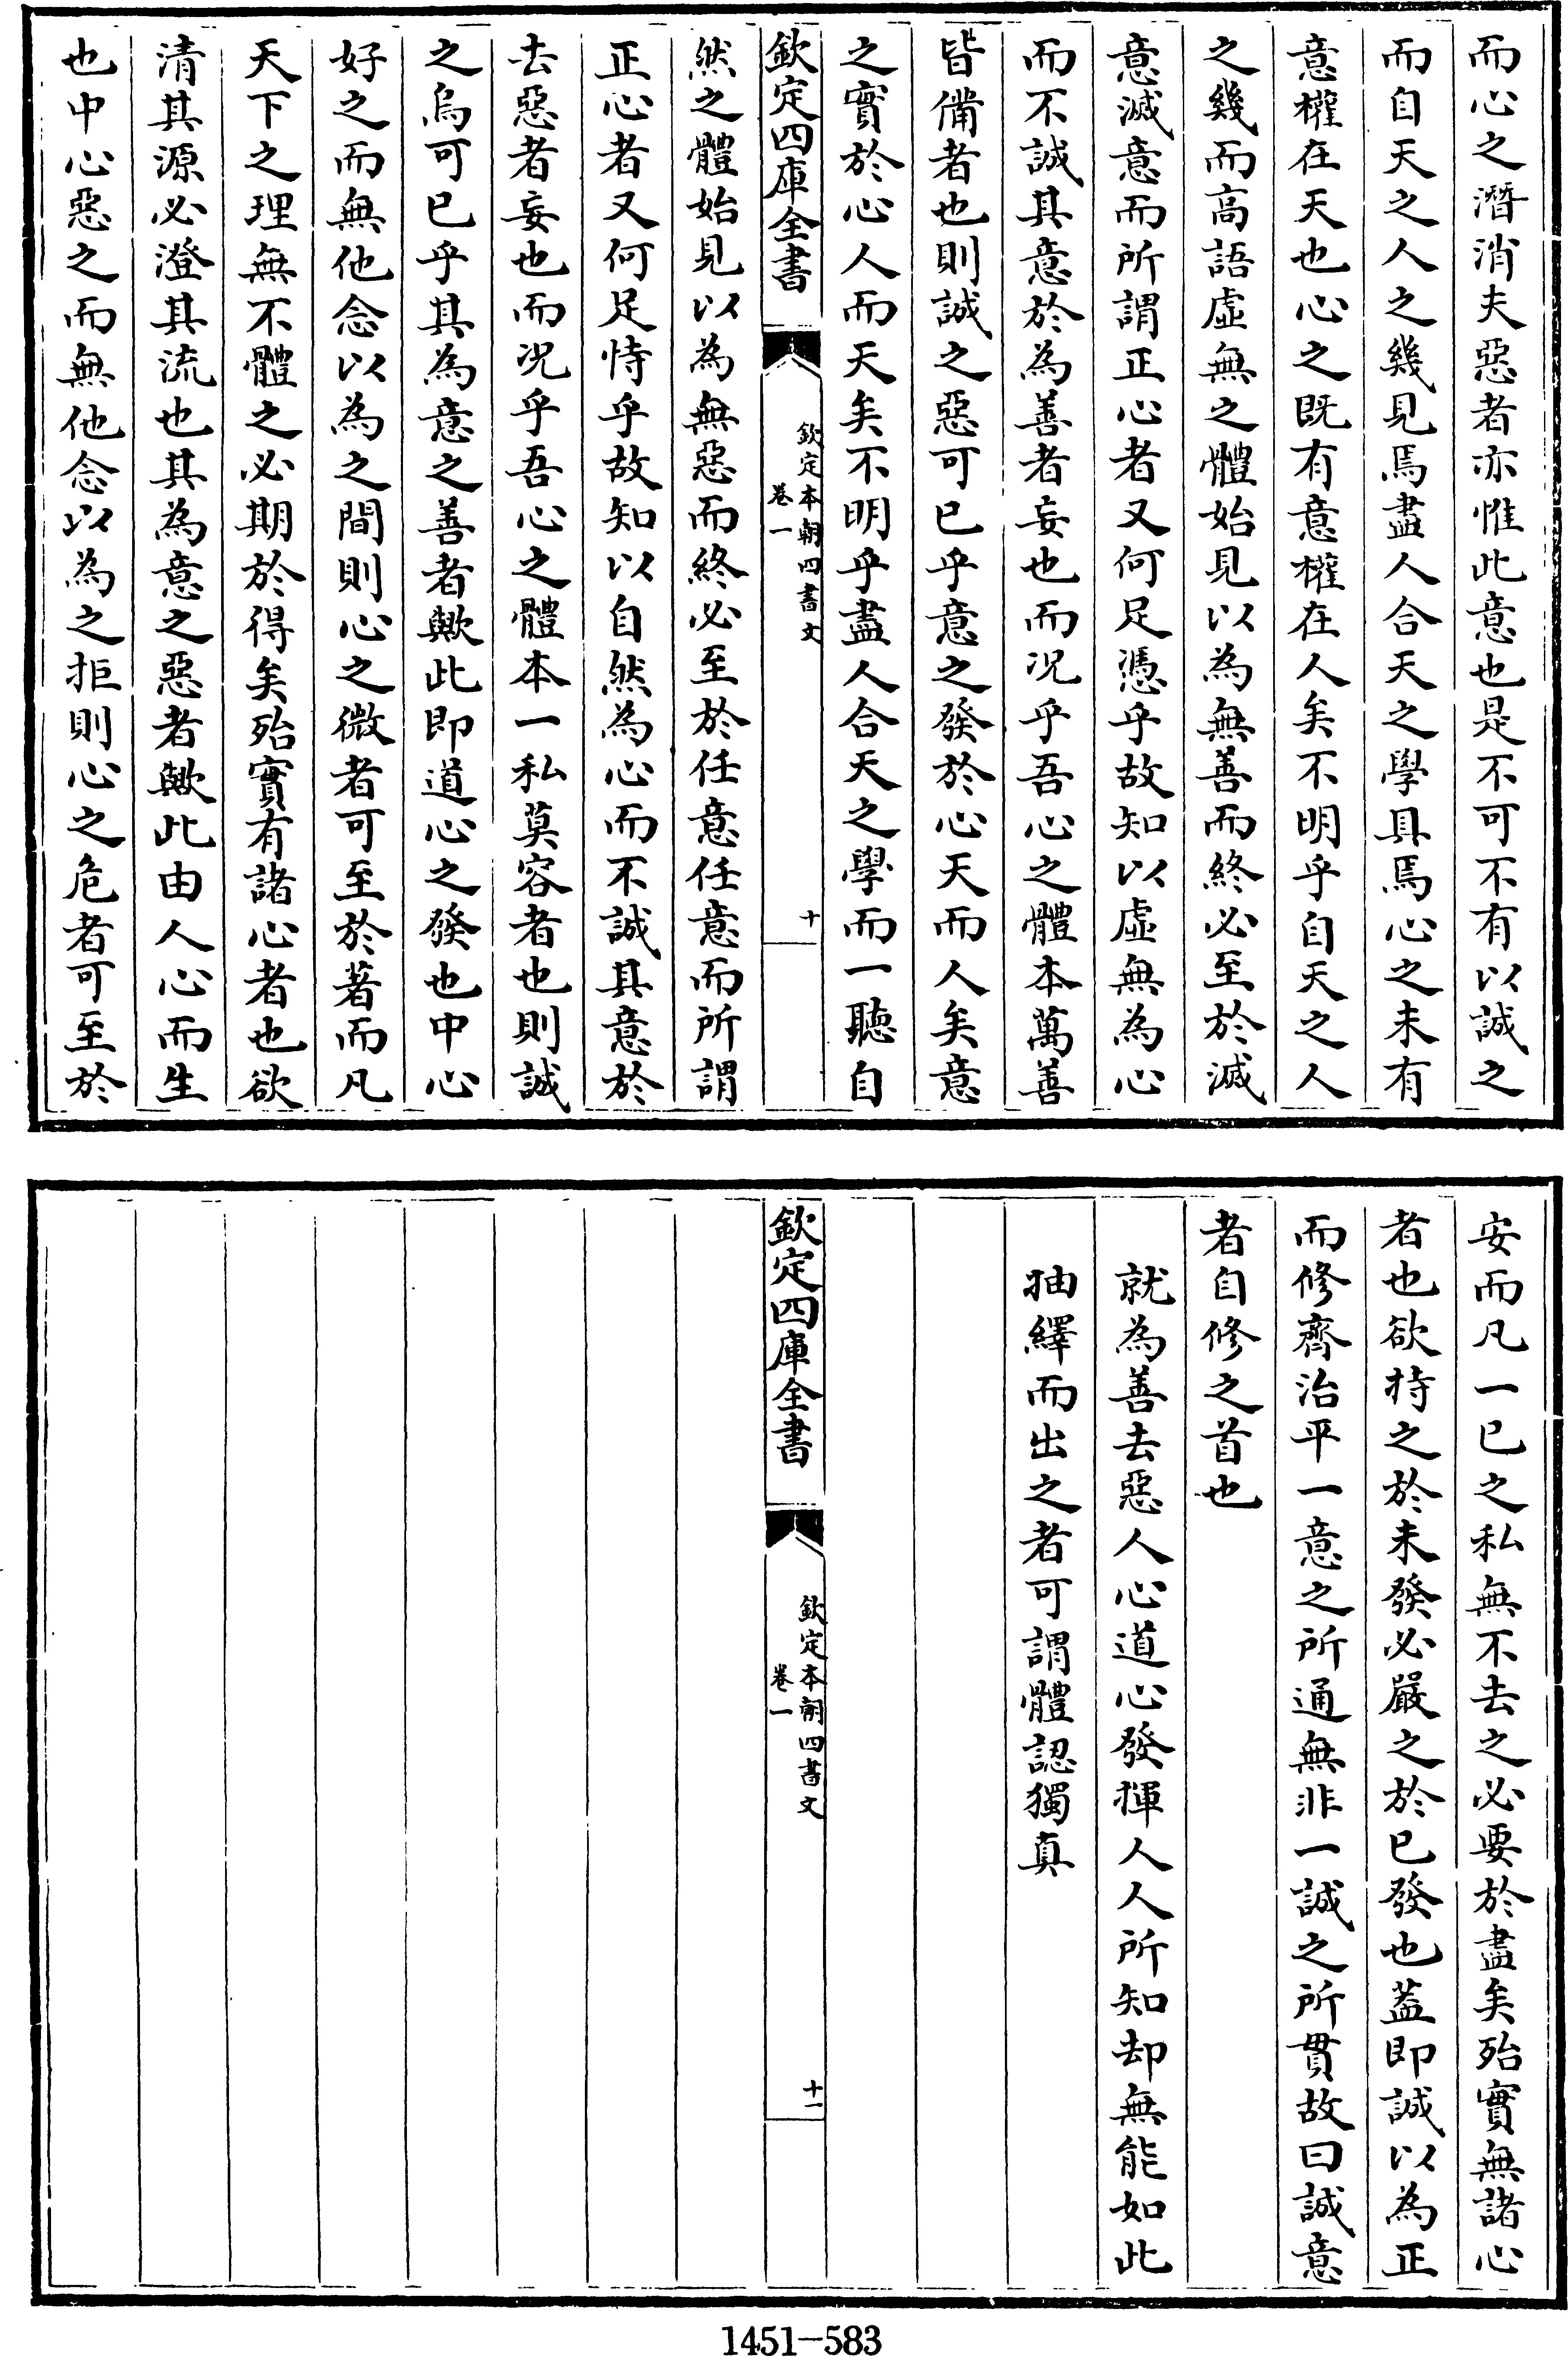 而心之潛消夫惡者亦惟此意也是不可不有以誠之
而自天之人之幾見焉盡人合天之學具焉心之未有
意權在天也心之既有意權在人矣不明乎自天之人
之幾而高語虛無之體始見以為無善而終必至於滅
意滅意而所謂正心者又何足憑乎故知以虛無為心
而不誠其意於為善者妄也而况乎吾心之體本萬善
皆備者也則誠之惡可已乎意之發於心天而人矣意
之實於心人而天矣不明乎盡人合天之學而一聽自
欽定四庫全書
欽定本朝四書文
卷一
十
然之體始見以為無惡而終必至於任意任意而所謂
正心者又何足恃乎故知以自然為心而不誠其意於
去惡者妄也而况乎吾心之體本一私莫容者也則誠
之烏可已乎其為意之善者歟此即道心之發也中心
好之而無他念以為之間則心之微者可至於著而凡
天下之理無不體之必期於得矣殆實有諸心者也欲
清其源必澄其流也其為意之惡者歟此由人心而生
也中心惡之而無他念以為之拒則心之危者可至於
安而凡一已之私無不去之必要於盡矣殆實無諸心
者也欲持之於未發必嚴之於已發也蓋即誠以為正
而修齊治平一意之所通無非一誠之所貫故曰誠意
者自修之首也
就為善去惡人心道心發揮人人所知却無能如此
抽繹而出之者可謂體認獨真
欽定四庫全書
欽定本朝四書文
卷一
十一
1451-583